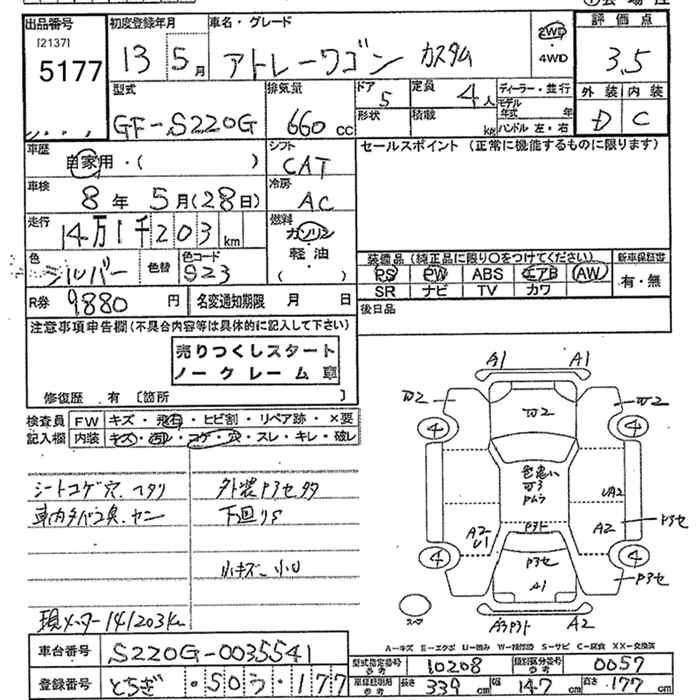 出品番号
[2137]
5177
初度登録年月
13 5月
車名・グレード
アトレーワゴン カスタム
2WD
・
4WD
評価点
3.5
外装 内装
D C
型式
GF-S220G
排気量
660 cc
ドア
5
形状
定員
4人
積載
kg
ディーラー・並行
モデル年式 年
ハンドル 左・右
車歴
自家用・( )
シフト
CAT
セールスポイント (正常に機能するものに限ります)
車検
8年 5月(28日)
冷房
AC
走行
14万1千203km
燃料
ガソリン
軽油・
( )
色
シルバー
色替
色コード
S23
装備品 (純正品に限り○をつけてください)
PS PW ABS エアB AW
SR ナビ TV カワ
新車保証書
有・無
R券 9,880 円
名変通知期限 月 日
後日品
注意事項申告欄 (不具合内容等は具体的に記入して下さい)
売りつくしスタート
ノークレーム車
修復歴 有 〔箇所 〕
検査員
記入欄
FW キズ・飛石・ヒビ割・リペア跡・×要
内装 キズ・汚レ・コゲ・穴・スレ・キレ・破レ
シートコゲ穴.ヘタリ
車内タバコ臭.ヤニ
外装P3セタ
下回りS
小キズ-小U
現メーター141203km
A1 A1
W2 W2
W2
4 4
色悪い
P3ト
UA2
A2
U1
A2
P3セ
4 4
P3セ
P3セ
A1
スペア
A2
A-キズ E-エクボ U-凹み W-補修跡 S-サビ C-腐食 XX-交換済
車台番号 S220G-0035541
登録番号 とちぎ・50つ・177
型式指定番号
参考
10208
類別区分番号
参考
0057
車検証明用
参考
長さ 339 cm 幅 147 cm 高さ 177 cm